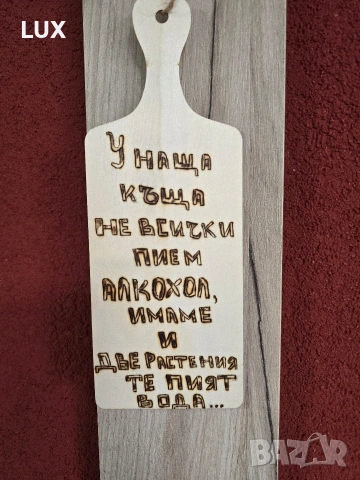 LUX
У НАША
КЪЩА
НЕ ВСИЧКИ
ПИЕМ
АЛКОХОЛ,
ИМАМЕ
И
ДВЕ РАСТЕНИЯ
ТЕ ПИЯТ
ВОДА...
BAZAR